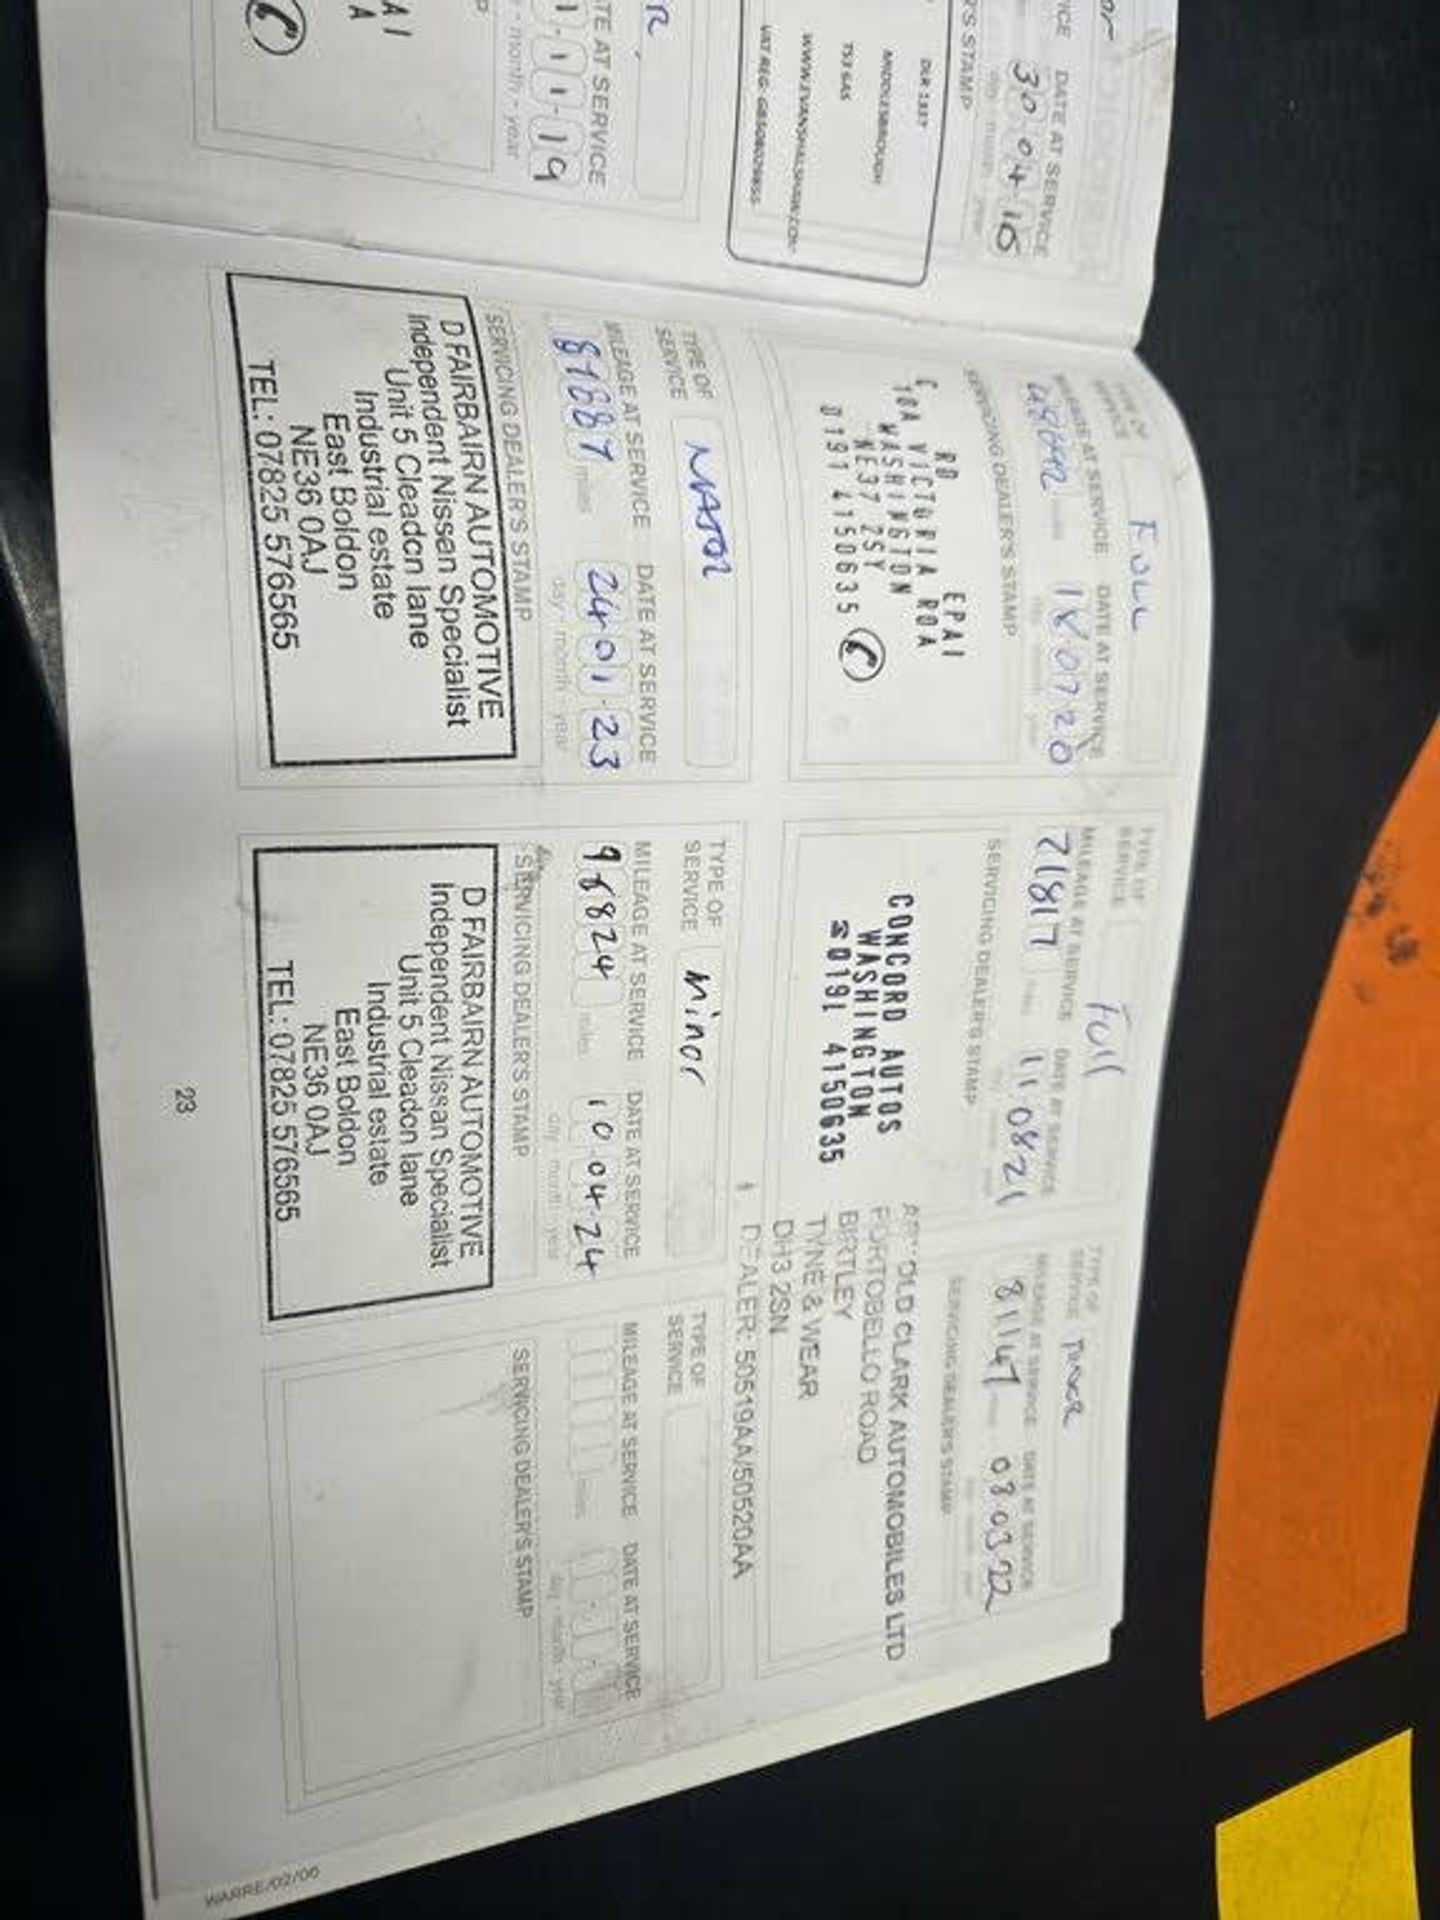 DATE AT SERVICE
30 04 16
day month year
DLR 1337
MIDDLESBROUGH
TS3 6AS
WWW.EVANSHALSHAW.COM
DATE AT SERVICE
1 1 1 1 19
month - year
TYPE OF SERVICE
FULL
MILEAGE AT SERVICE DATE AT SERVICE
18 07 20
SERVICING DEALER'S STAMP
RD EPAI
10A VICTORIA ROA
WASHINGTON
NE37 2SY
0191 4150635
TYPE OF SERVICE
Full
MILEAGE AT SERVICE DATE AT SERVICE
71817 11 08 21
SERVICING DEALER'S STAMP
CONCORD AUTOS
WASHINGTON
☎0191 4150635
TYPE OF SERVICE
MILEAGE AT SERVICE DATE AT SERVICE
81147 08 03 22
SERVICING DEALER'S STAMP
CLARK AUTOMOBILES LTD
PORTOBELLO ROAD
BIRTLEY
TYNE & WEAR
DH3 2SN
DEALER: 50519AA/50520AA
TYPE OF SERVICE
MAJOR
MILEAGE AT SERVICE DATE AT SERVICE
miles 24 01 23
day - month - year
SERVICING DEALER'S STAMP
D FAIRBAIRN AUTOMOTIVE
Independent Nissan Specialist
Unit 5 Cleadon lane
Industrial estate
East Boldon
NE36 0AJ
TEL: 07825 576565
TYPE OF SERVICE
Minor
MILEAGE AT SERVICE DATE AT SERVICE
98824 miles 10 04 24
day month year
SERVICING DEALER'S STAMP
D FAIRBAIRN AUTOMOTIVE
Independent Nissan Specialist
Unit 5 Cleadon lane
Industrial estate
East Boldon
NE36 0AJ
TEL: 07825 576565
TYPE OF SERVICE
MILEAGE AT SERVICE DATE AT SERVICE
miles day - month - year
SERVICING DEALER'S STAMP
23
WARRE/02/06